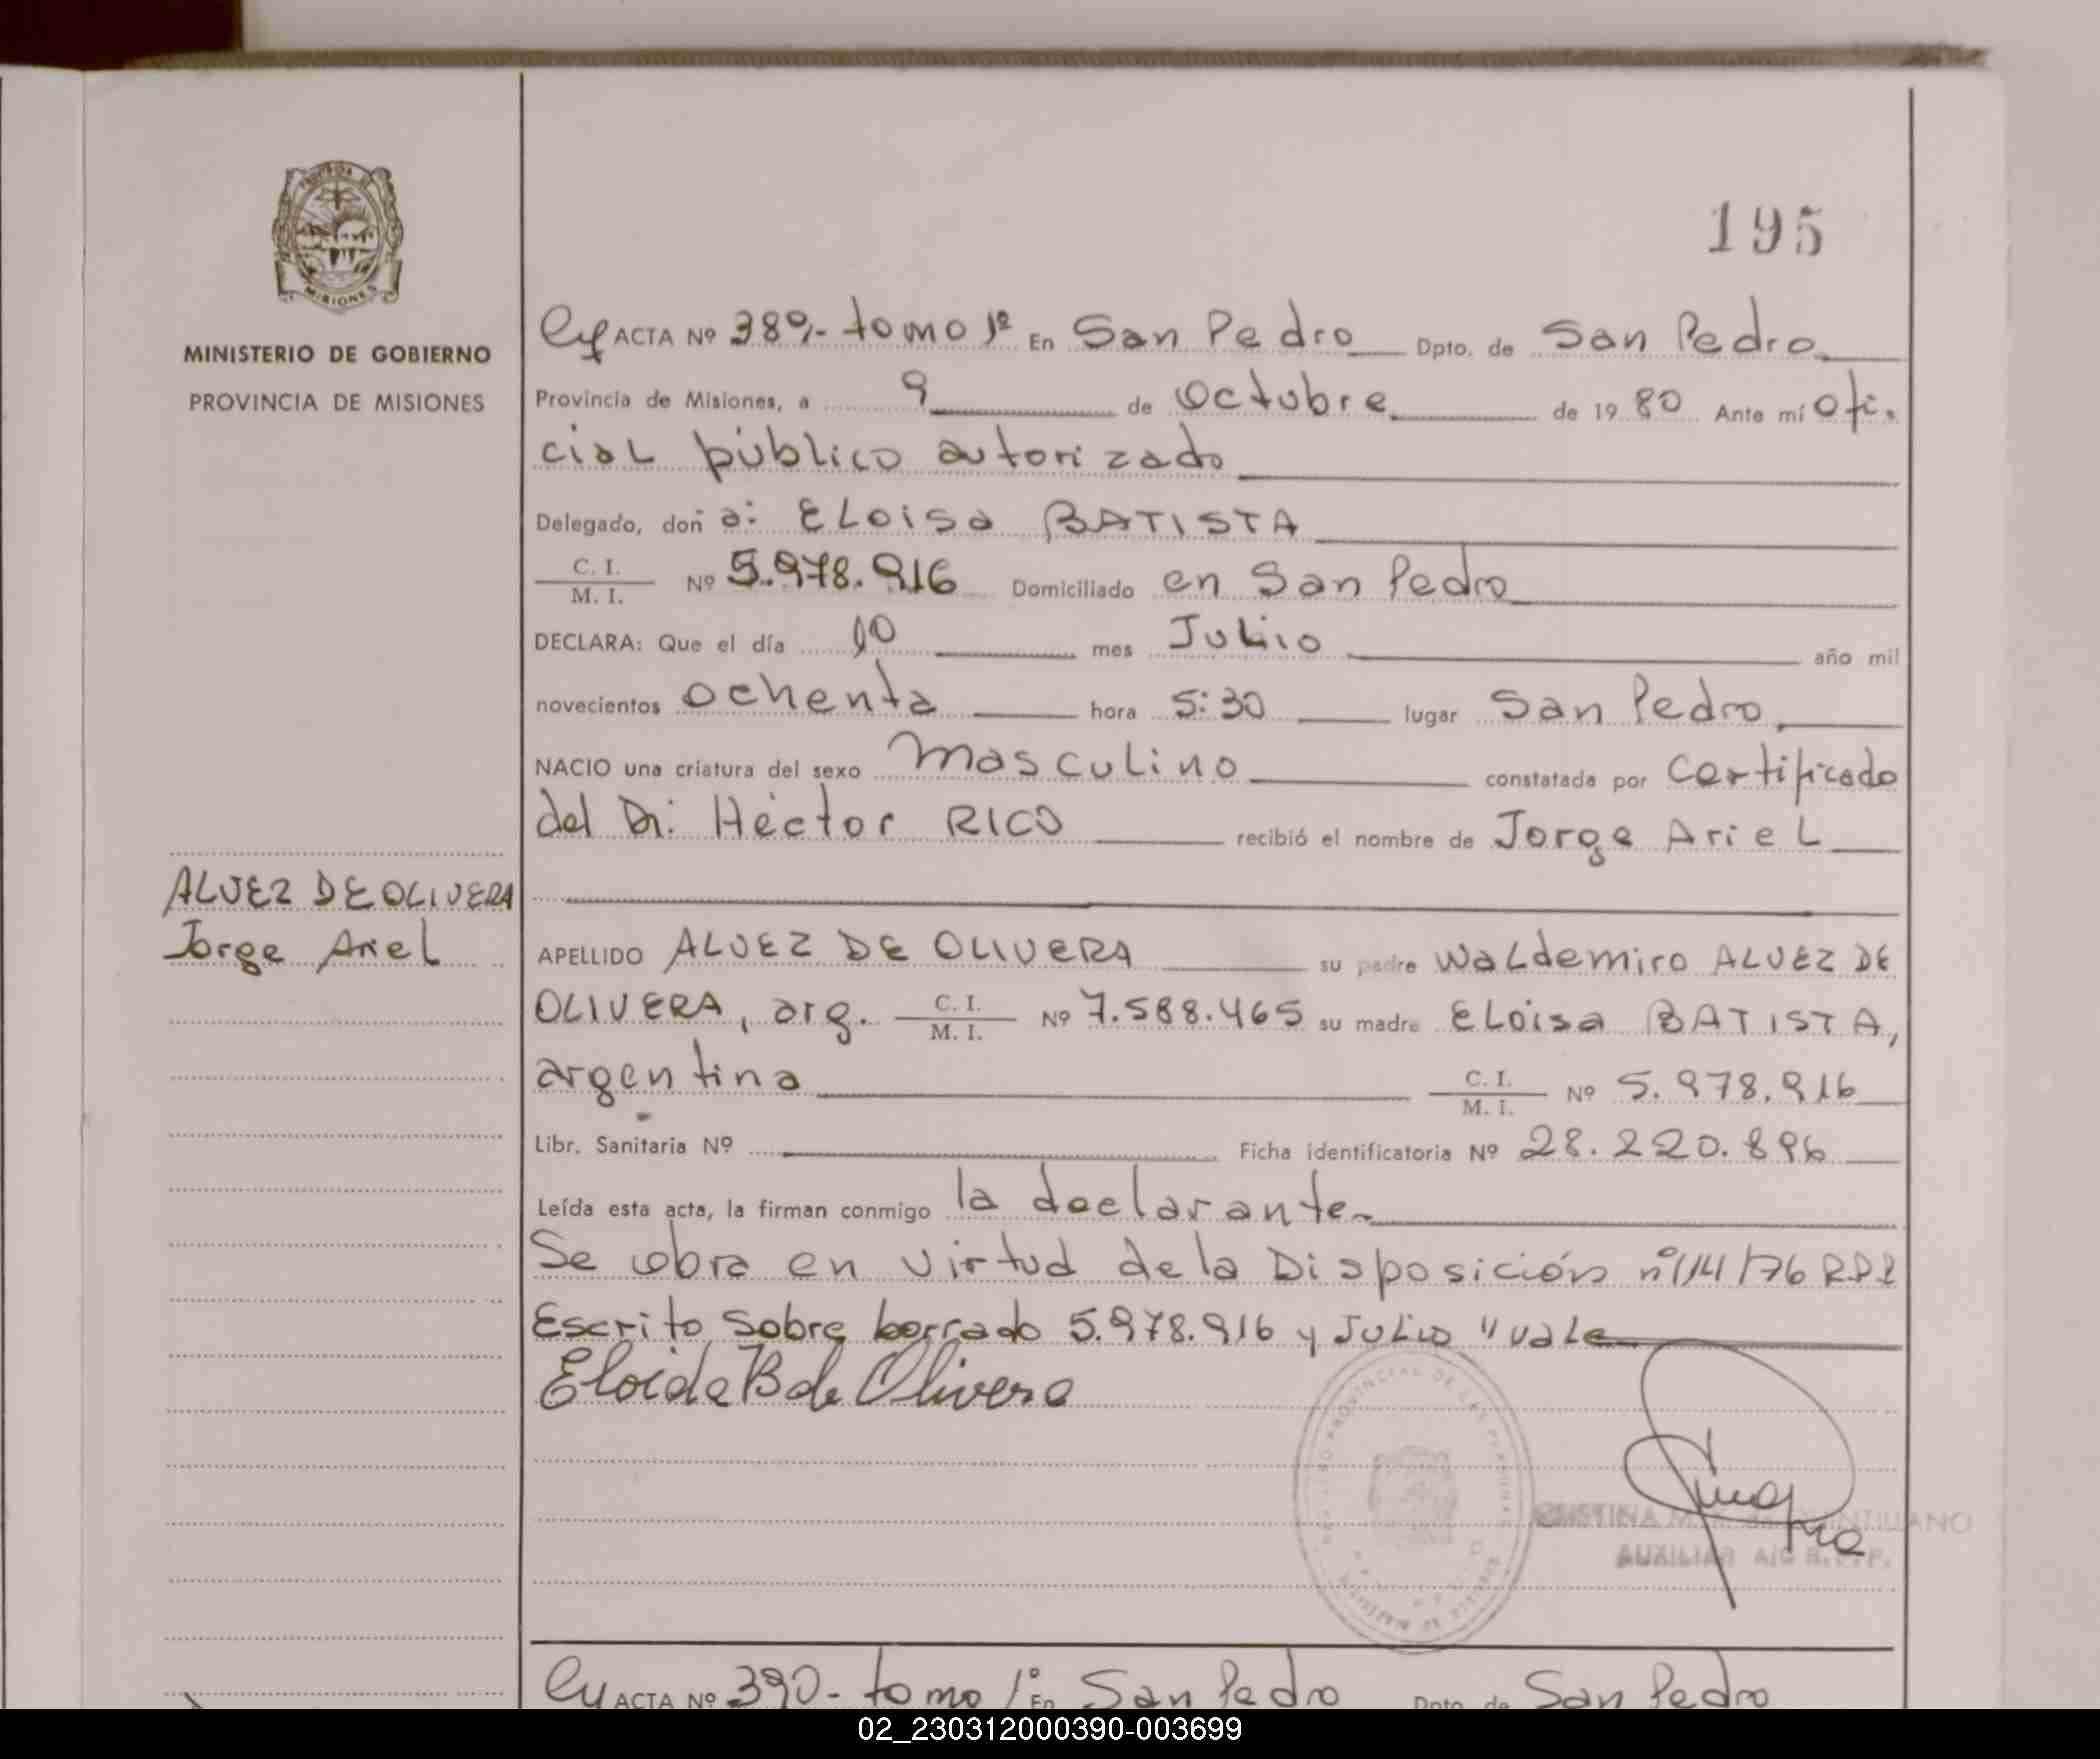 195
MINISTERIO DE GOBIERNO
PROVINCIA DE MISIONES
ACTA Nº 389- tomo 1º En San Pedro Dpto. de San Pedro
Provincia de Misiones, a 9 de Octubre de 1980 Ante mí Ofi-
cial público autorizado
Delegado, doña: ELoisa BATISTA
C. I.
M. I. Nº 5.978.916 Domiciliado en San Pedro
DECLARA: Que el día 10 mes Julio año mil
novecientos ochenta hora 5:30 lugar San Pedro,
NACIO una criatura del sexo masculino constatada por Certificado
del Dr: Héctor RICO recibió el nombre de Jorge Ariel
ALVEZ DE OLIVERA
Jorge Ariel
APELLIDO ALVEZ DE OLIVERA su padre Waldemiro ALVEZ DE
OLIVERA, arg. C. I.
M. I. Nº 7.588.465 su madre ELoisa BATISTA,
argentina C. I.
M. I. Nº 5.978.916
Libr. Sanitaria Nº Ficha identificatoria Nº 28.220.896
Leída esta acta, la firman conmigo la declarante.-
Se obra en virtud de la Disposición nº 114/76
Escrito sobre borrado 5.978.916 y Julio "vale
Eloida B de Olivera
AUXILIAR A/C
ACTA Nº 390- tomo 1º En San Pedro Dpto. de San Pedro
02_230312000390-003699